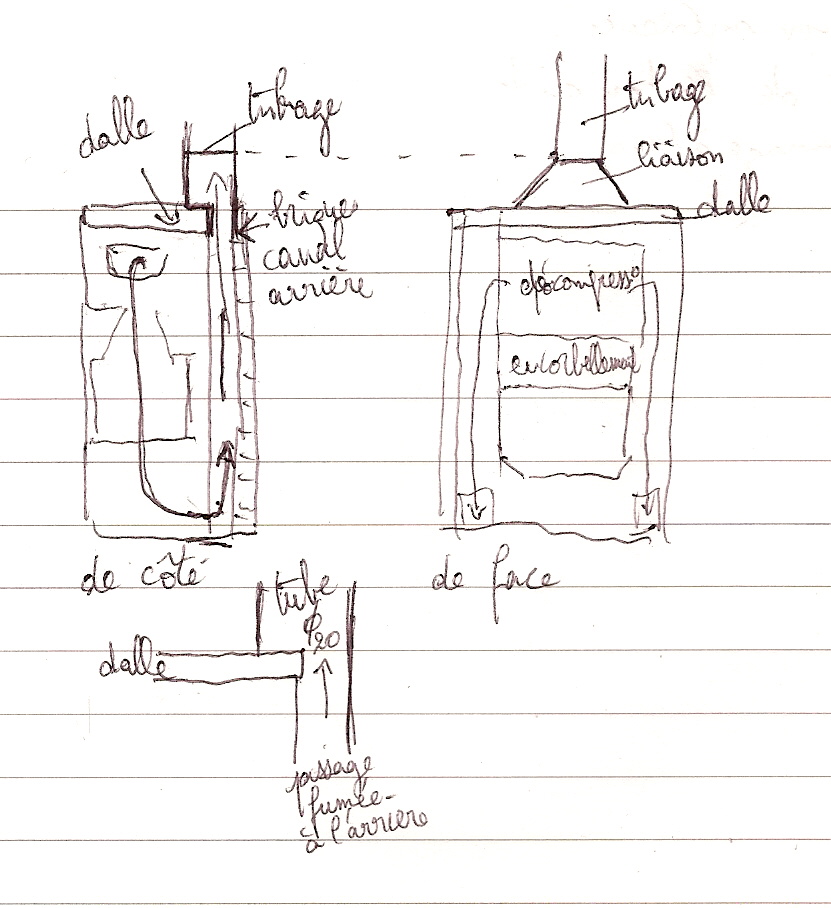 tubage
dalle
brique
canal
arrière
tubage
liaison
dalle
décompress°
encorbellement
de côté
de face
tube
ϕ20
dalle
passage
fumée
à l'arrière